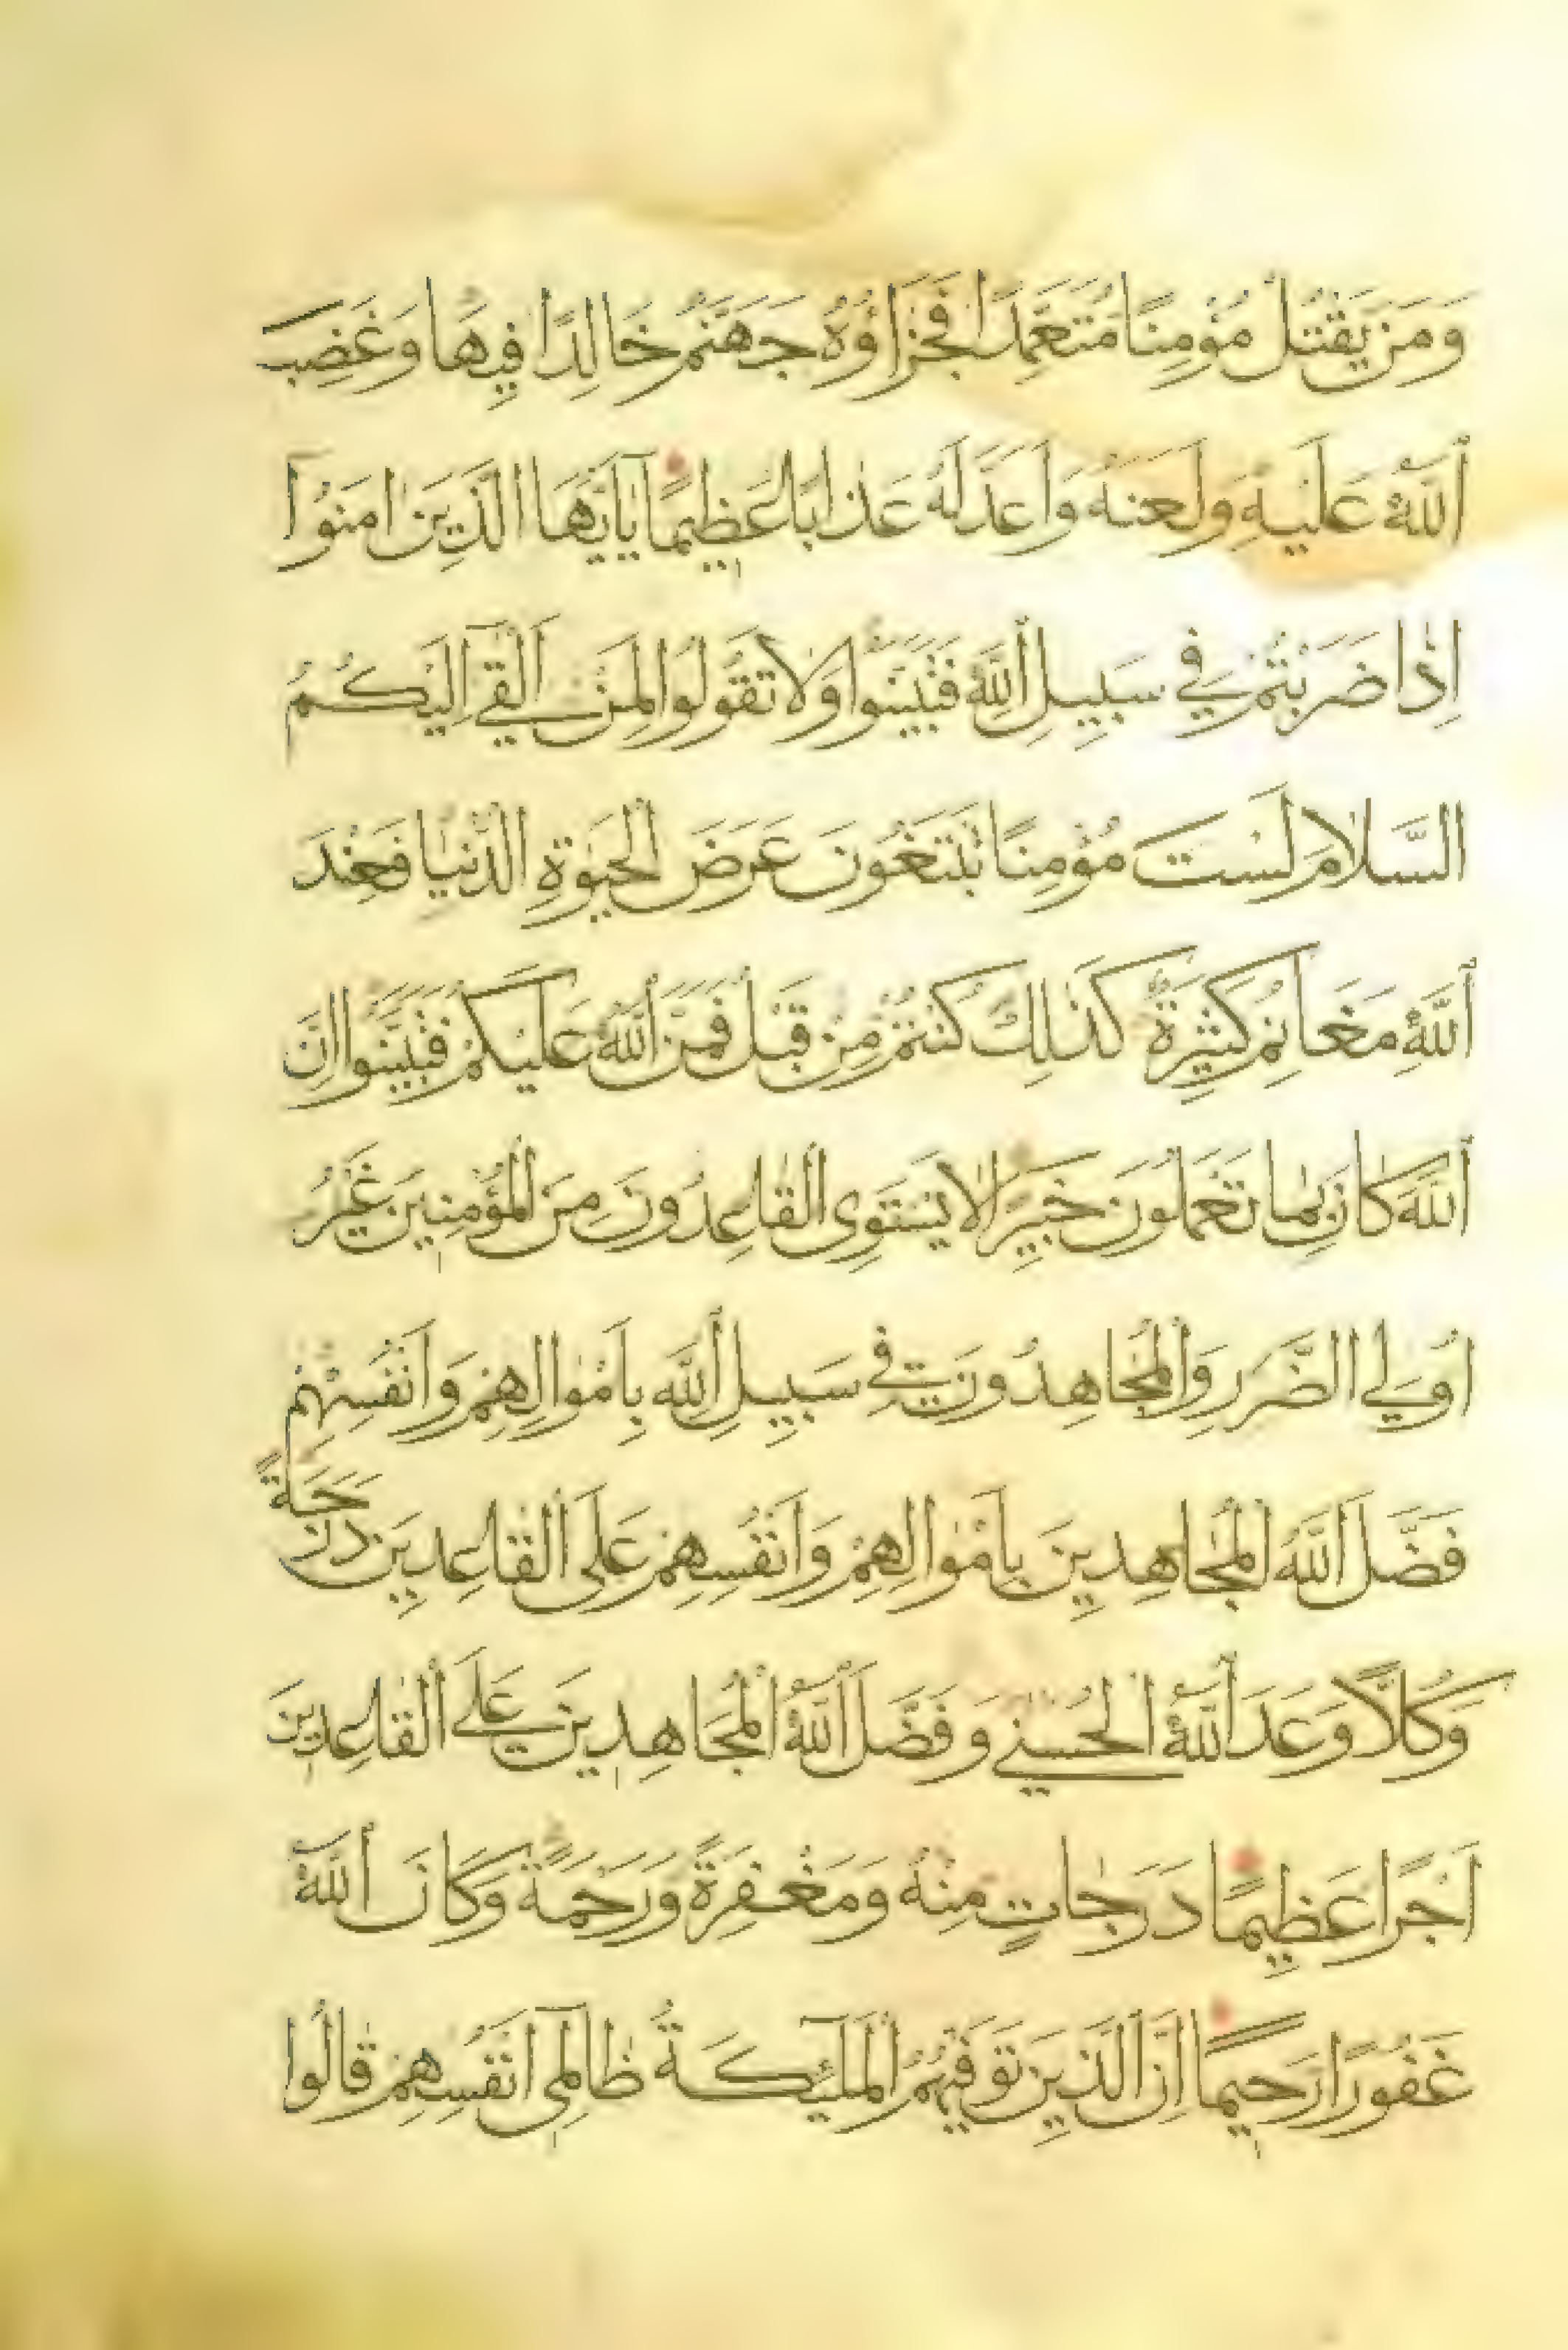 وَمَنْ يَقْتُلْ مُؤْمِنًا مُتَعَمِّدًا فَجَزَاؤُهُ جَهَنَّمُ خَالِدًا فِيهَا وَغَضِبَ
اللَّهُ عَلَيْهِ وَلَعَنَهُ وَاَعَدَّ لَهُ عَذَابًا عَظِيمًا يَااَيُّهَا الَّذِينَ اٰمَنُوا
اِذَا ضَرَبْتُمْ فِي سَبِيلِ اللَّهِ فَتَبَيَّنُوا وَلَا تَقُولُوا لِمَنْ اَلْقٰى اِلَيْكُمُ
السَّلَامَ لَسْتَ مُؤْمِنًا تَبْتَغُونَ عَرَضَ الْحَيٰوةِ الدُّنْيَا فَعِنْدَ
اللَّهِ مَغَانِمُ كَثِيرَةٌ كَذٰلِكَ كُنْتُمْ مِنْ قَبْلُ فَمَنَّ اللَّهُ عَلَيْكُمْ فَتَبَيَّنُوا اِنَّ
اللَّهَ كَانَ بِمَا تَعْمَلُونَ خَبِيرًا لَا يَسْتَوِى الْقَاعِدُونَ مِنَ الْمُؤْمِنِينَ غَيْرُ
اُولِي الضَّرَرِ وَالْمُجَاهِدُونَ فِي سَبِيلِ اللَّهِ بِاَمْوَالِهِمْ وَاَنْفُسِهِمْ
فَضَّلَ اللَّهُ الْمُجَاهِدِينَ بِاَمْوَالِهِمْ وَاَنْفُسِهِمْ عَلَى الْقَاعِدِينَ دَرَجَةً
وَكُلًّا وَعَدَ اللَّهُ الْحُسْنٰى وَفَضَّلَ اللَّهُ الْمُجَاهِدِينَ عَلَى الْقَاعِدِينَ
اَجْرًا عَظِيمًا دَرَجَاتٍ مِنْهُ وَمَغْفِرَةً وَرَحْمَةً وَكَانَ اللَّهُ
غَفُورًا رَحِيمًا اِنَّ الَّذِينَ تَوَفّٰيهُمُ الْمَلٰٓئِكَةُ ظَالِمِى اَنْفُسِهِمْ قَالُوا